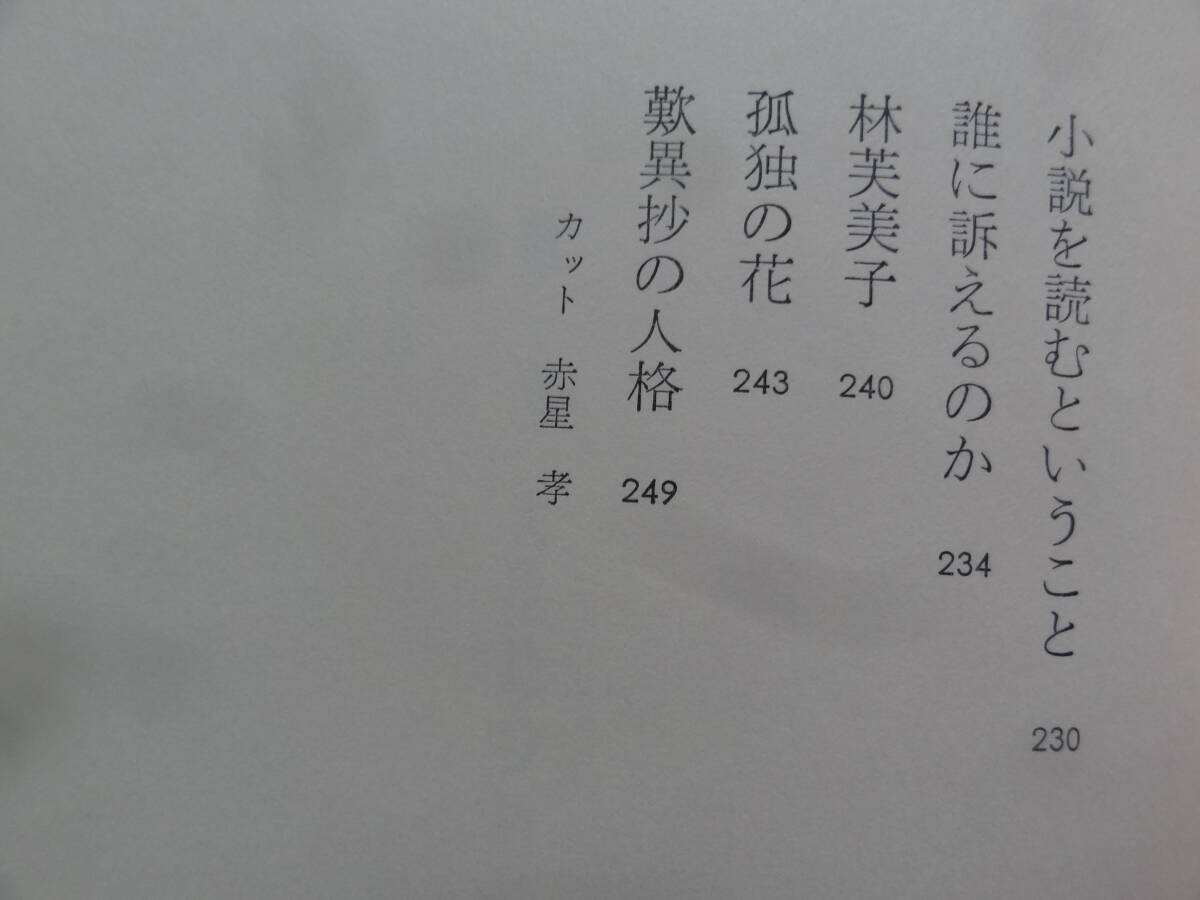 小説を読むということ 230
誰に訴えるのか 234
林芙美子 240
孤独の花 243
歎異抄の人格 249
カット 赤星 孝